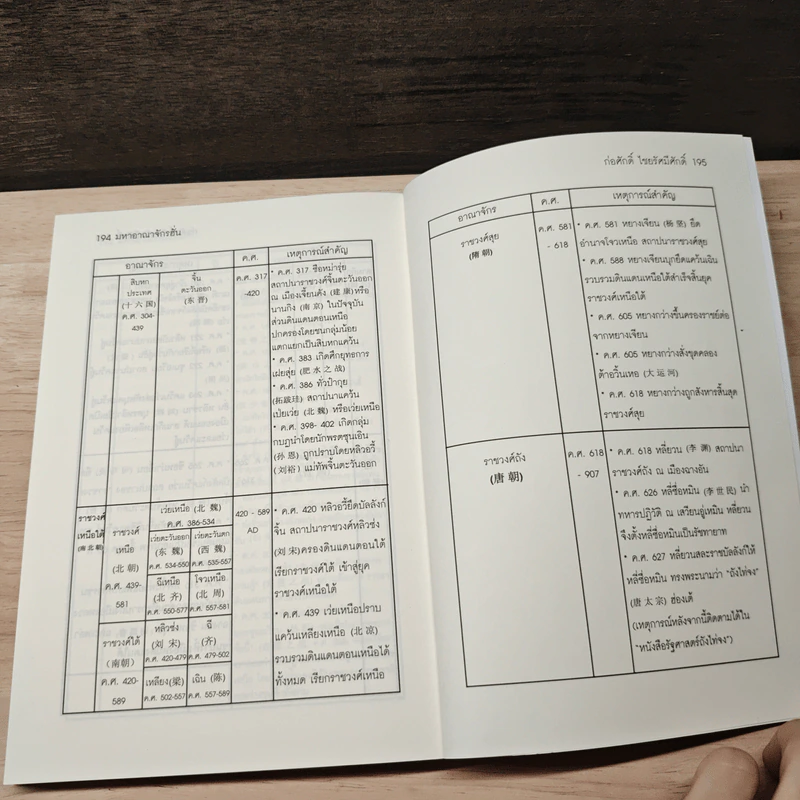 194 มหาอาณาจักรฮั่น
อาณาจักร
ค.ศ.
เหตุการณ์สำคัญ
สิบหก
ประเทศ
(十六国)
ค.ศ. 304-
439
จิ้น
ตะวันออก
(东晋)
ค.ศ. 317
-420
• ค.ศ. 317 ซือหม่ารุ่ย
สถาปนาราชวงศ์จิ้นตะวันออก
ณ เมืองเจี้ยนคัง (建康)หรือ
นานกิง (南京) ในปัจจุบัน
ส่วนดินแดนตอนเหนือ
ปกครองโดยชนกลุ่มน้อย
แตกแยกเป็นสิบหกแคว้น
• ค.ศ. 383 เกิดศึกยุทธการ
เฝยสุ่ย (肥水之战)
• ค.ศ. 386 ทั่วป๋ากุย
(拓跋珪) สถาปนาแคว้น
เป่ยเว่ย (北魏) หรือเว่ยเหนือ
• ค.ศ. 398- 402 เกิดกลุ่ม
กบฏนำโดยนักพรตซุนเอิน
(孙恩) ถูกปราบโดยหลิวอวี้
(刘裕) แม่ทัพจิ้นตะวันออก
ราชวงศ์
เหนือใต้
(南北朝)
ราชวงศ์
เหนือ
(北朝)
ค.ศ. 439-
581
เว่ยเหนือ (北魏)
ค.ศ. 386-534
เว่ยตะวันออก
(东魏)
ค.ศ. 534-550
เว่ยตะวันตก
(西魏)
ค.ศ. 535-557
ฉีเหนือ
(北齐)
ค.ศ. 550-577
โจวเหนือ
(北周)
ค.ศ. 557-581
ราชวงศ์ใต้
(南朝)
ค.ศ. 420-
589
หลิวซ่ง
(刘宋)
ค.ศ. 420-479
ฉี
(齐)
ค.ศ. 479-502
เหลียง(梁)
ค.ศ. 502-557
เฉิน (陈)
ค.ศ. 557-589
420 - 589
AD
• ค.ศ. 420 หลิวอวี้ยึดบัลลังก์
จิ้น สถาปนาราชวงศ์หลิวซ่ง
(刘宋)ครองดินแดนตอนใต้
เรียกราชวงศ์ใต้ เข้าสู่ยุค
ราชวงศ์เหนือใต้
• ค.ศ. 439 เว่ยเหนือปราบ
แคว้นเหลียงเหนือ (北凉)
รวบรวมดินแดนตอนเหนือได้
ทั้งหมด เรียกราชวงศ์เหนือ
ก่อศักดิ์ ไชยรัศมีศักดิ์ 195
อาณาจักร
ค.ศ.
เหตุการณ์สำคัญ
ราชวงศ์สุย
(隋朝)
ค.ศ. 581
- 618
• ค.ศ. 581 หยางเจียน (杨坚) ยึด
อำนาจโจวเหนือ สถาปนาราชวงศ์สุย
• ค.ศ. 588 หยางเจียนบุกยึดแคว้นเฉิน
รวบรวมดินแดนเหนือใต้สำเร็จสิ้นยุค
ราชวงศ์เหนือใต้
• ค.ศ. 605 หยางกว่างขึ้นครองราชย์ต่อ
จากหยางเจียน
• ค.ศ. 605 หยางกว่างสั่งขุดคลอง
ต้าอวิ้นเหอ (大运河)
• ค.ศ. 618 หยางกว่างถูกสังหารสิ้นสุด
ราชวงศ์สุย
ราชวงศ์ถัง
(唐朝)
ค.ศ. 618
- 907
• ค.ศ. 618 หลี่ยวน (李渊) สถาปนา
ราชวงศ์ถัง ณ เมืองฉางอัน
• ค.ศ. 626 หลี่ซื่อหมิน (李世民) นำ
ทหารปฏิวัติ ณ เสวียนอู่เหมิน หลี่ยวน
จึงตั้งหลี่ซื่อหมินเป็นรัชทายาท
• ค.ศ. 627 หลี่ยวนสละราชบัลลังก์ให้
หลี่ซื่อหมิน ทรงพระนามว่า "ถังไท่จง"
(唐太宗) ฮ่องเต้
(เหตุการณ์หลังจากนี้ติดตามได้ใน
"หนังสือรัฐศาสตร์ถังไท่จง")